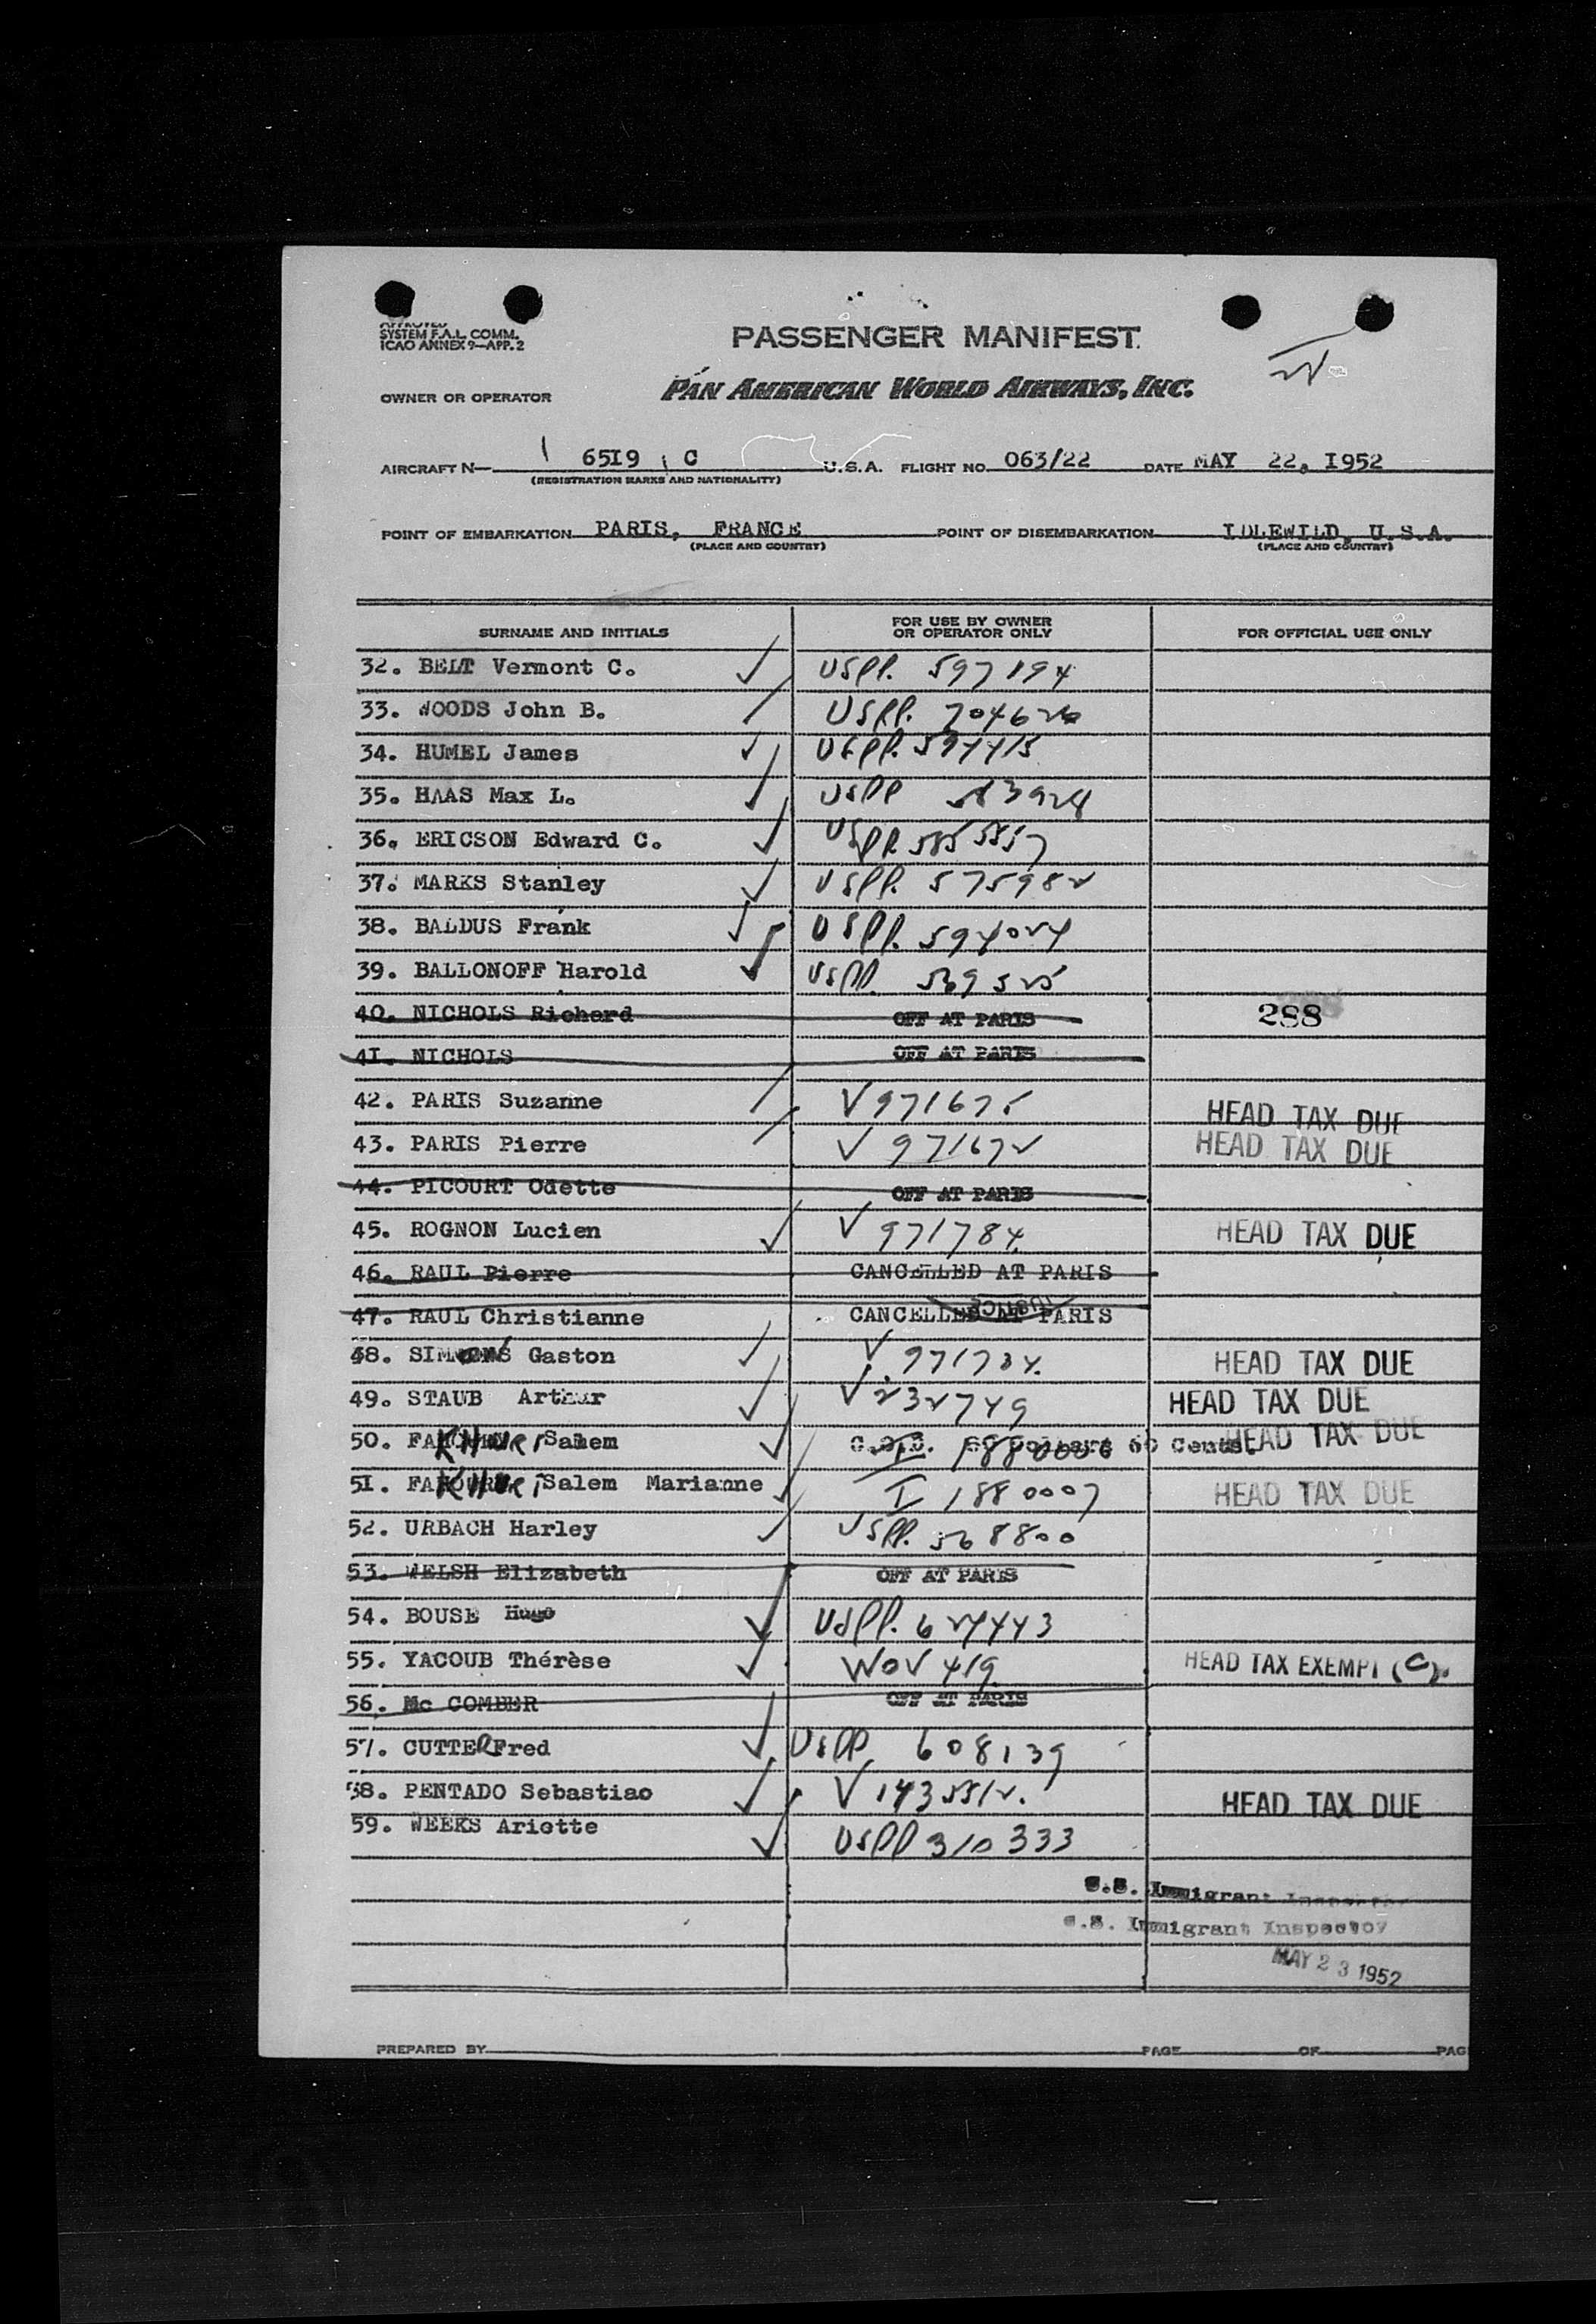 APPROVED
SYSTEM F.A.L. COMM.
ICAO ANNEX 9—APP. 2
PASSENGER MANIFEST
OWNER OR OPERATOR PAN AMERICAN WORLD AIRWAYS, INC.
AIRCRAFT N— 65I9 C U.S.A. FLIGHT NO. 063/22 DATE MAY 22, I952
(REGISTRATION MARKS AND NATIONALITY)
POINT OF EMBARKATION PARIS, FRANCE POINT OF DISEMBARKATION IDLEWILD, U.S.A.
(PLACE AND COUNTRY) (PLACE AND COUNTRY)
SURNAME AND INITIALS FOR USE BY OWNER OR OPERATOR ONLY FOR OFFICIAL USE ONLY
32. BELT Vermont C. USPP. 597194
33. WOODS John B. USPP.
34. HUMEL James USPP.
35. HAAS Max L. USPP
36. ERICSON Edward C. USPP.
37. MARKS Stanley USPP. 575982
38. BALDUS Frank USPP. 594024
39. BALLONOFF Harold USPP. 569525
40. NICHOLS Richard OFF AT PARIS 288
4I. NICHOLS OFF AT PARIS
42. PARIS Suzanne V 971675 HEAD TAX DUE
43. PARIS Pierre V 971672 HEAD TAX DUE
44. PICOURT Odette OFF AT PARIS
45. ROGNON Lucien V 971784 HEAD TAX DUE
46. RAUL Pierre CANCELLED AT PARIS
47. RAUL Christianne CANCELLED AT PARIS
48. Gaston V HEAD TAX DUE
49. STAUB Arthur V 232749 HEAD TAX DUE
50. KHURI Salem I 1880006 HEAD TAX DUE
5I. KHURI Salem Marianne I 1880007 HEAD TAX DUE
52. URBACH Harley USPP. 568800
53. WELSH Elizabeth OFF AT PARIS
54. BOUSE Hugo USPP. 624443
55. YACOUB Thérèse WOV 419 HEAD TAX EXEMPT (C)
56. Mc COMBER OFF AT PARIS
57. CUTTER Fred USPP 608139
58. PENTADO Sebastiao V 1435512. HEAD TAX DUE
59. WEEKS Ariette USPP 310333
U.S. Immigrant Inspector
U.S. Immigrant Inspector
MAY 23 1952
PREPARED BY PAGE OF PAG